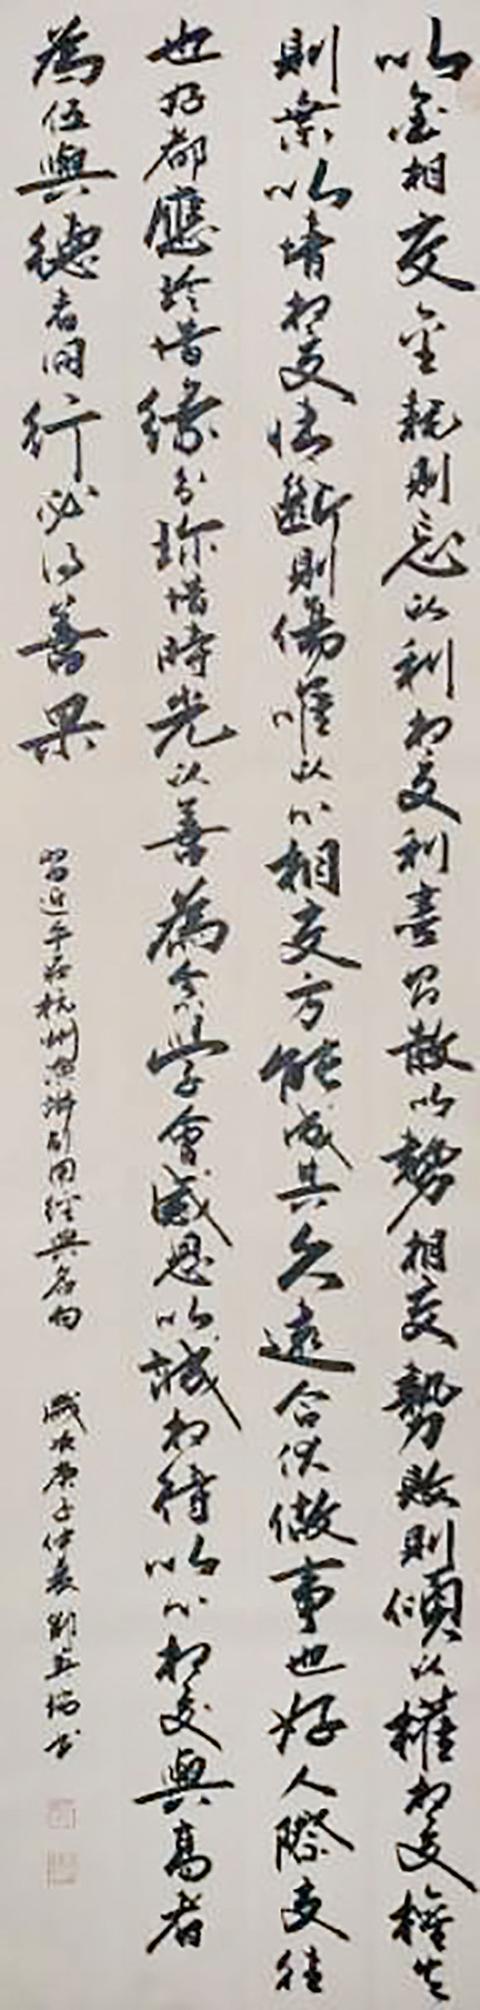 以金相交金耗则忘以利相交利盡則散以勢相交勢敗則傾以權相交權失
則棄以情相交情斷則傷唯以心相交方能成其久遠合伙做事也好人際交往
也好都應珍惜緣分珍惜時光以善為念學會感恩以誠相待以心相交與高者
為伍與德者同行必得善果
習近平在杭州演講引用經典名句
歲次庚子仲夏劉